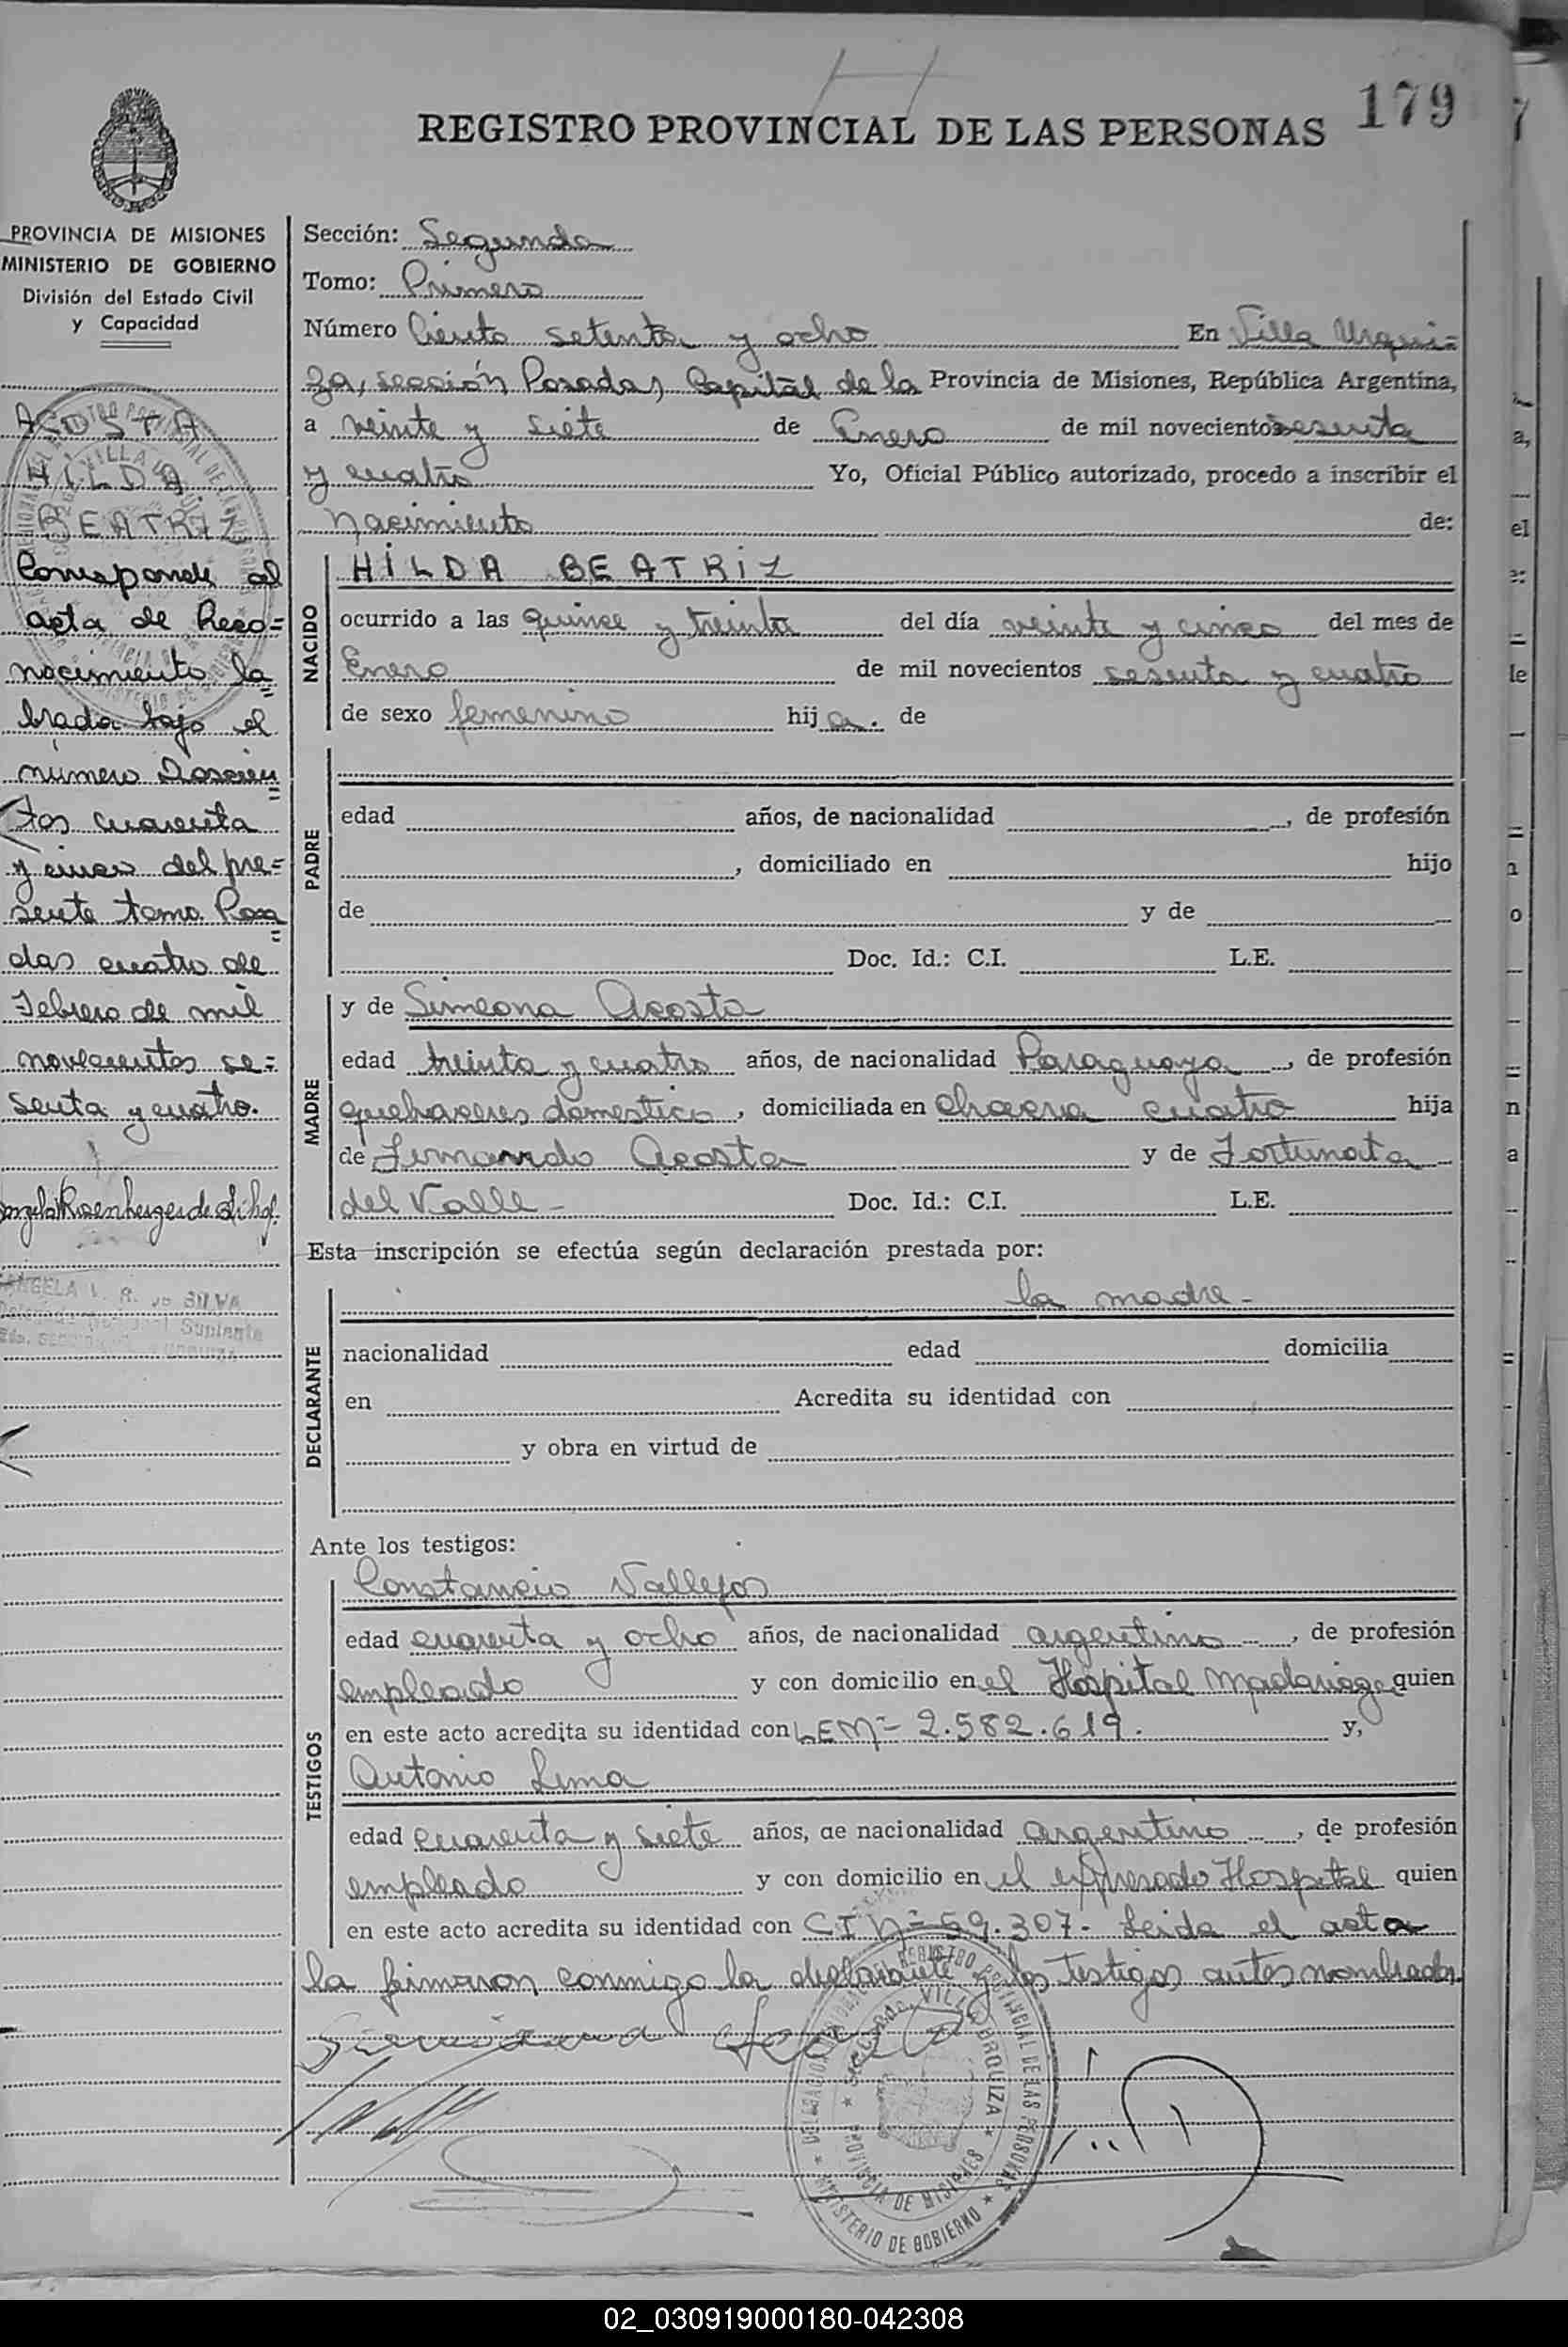 179
REGISTRO PROVINCIAL DE LAS PERSONAS
PROVINCIA DE MISIONES
MINISTERIO DE GOBIERNO
División del Estado Civil
y Capacidad
ACOSTA
HILDA
BEATRIZ
Corresponde al
acta de Reco=
nocimiento la=
brada bajo el
número Doscien=
tos cuarenta
y cinco del pre=
sente tomo. Posa=
das cuatro de
Febrero de mil
novecientos se=
senta y cuatro.
ANGELA V. R. DE SILVA
Suplente
Sección: Segunda
Tomo: Primero
Número Ciento setenta y ocho En Villa Urqui=
za, sección Posadas, Capital de la Provincia de Misiones, República Argentina,
a veinte y siete de Enero de mil novecientos sesenta
y cuatro Yo, Oficial Público autorizado, procedo a inscribir el
Nacimiento de:
NACIDO
HILDA BEATRIZ
ocurrido a las quince y treinta del día veinte y cinco del mes de
Enero de mil novecientos sesenta y cuatro
de sexo femenino hija. de
PADRE
edad años, de nacionalidad , de profesión
, domiciliado en hijo
de y de
Doc. Id.: C.I. L.E.
MADRE
y de Simeona Acosta
edad treinta y cuatro años, de nacionalidad Paraguaya , de profesión
quehaceres domestico , domiciliada en Chacra cuatro hija
de Acosta y de Fortunata
del Valle - Doc. Id.: C.I. L.E.
Esta inscripción se efectúa según declaración prestada por:
DECLARANTE
la madre -
nacionalidad edad domicilia
en Acredita su identidad con
y obra en virtud de
Ante los testigos:
TESTIGOS
Constancio Vallejos
edad cuarenta y ocho años, de nacionalidad argentino , de profesión
empleado y con domicilio en el Hospital Madariaga quien
en este acto acredita su identidad con LEMº 2.582.619. y,
Antonio Lima
edad cuarenta y siete años, de nacionalidad argentino , de profesión
empleado y con domicilio en el expresado Hospital quien
en este acto acredita su identidad con CI Nº 59.307- Leida el acta
la firmaron conmigo la declarante y los testigos antes nombrados.
DELEGACION REGISTRO PROVINCIAL DE LAS PERSONAS
VILLA URQUIZA
PROVINCIA DE MISIONES
MINISTERIO DE GOBIERNO
02_030919000180-042308